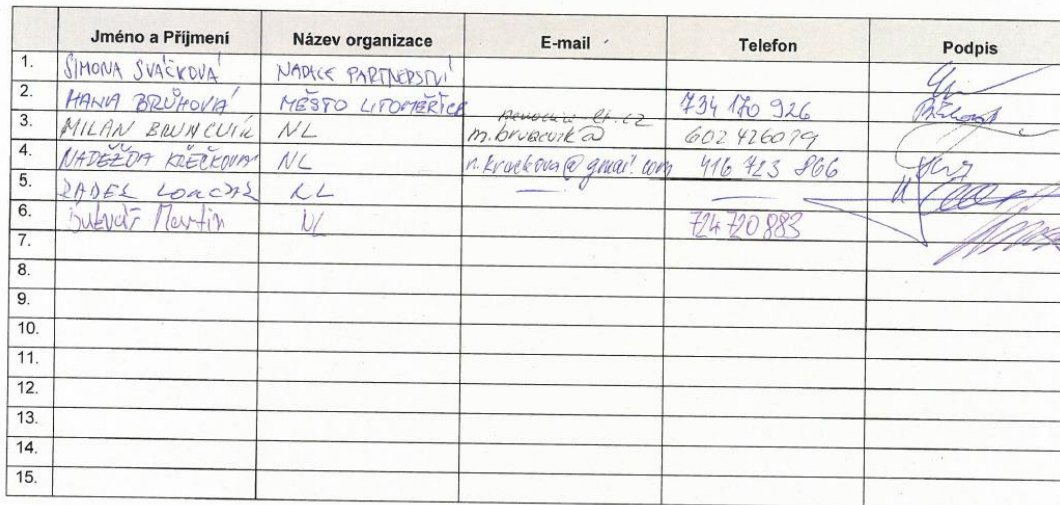 Jméno a Příjmení Název organizace E-mail Telefon Podpis
1. SIMONA SVAČKOVÁ NADACE PARTNERSTVÍ
2. HANA BRŮHOVÁ MĚSTO LITOMĚŘICE 734 170 926
3. MILAN BRUNCVÍK NL m.bruncvik@ 602426079
4. NADĚŽDA KŘEČKOVÁ NL n.kreckova@gmail.com 416 723 866
5. NL
6. Martin NL 724 720 883
7.
8.
9.
10.
11.
12.
13.
14.
15.